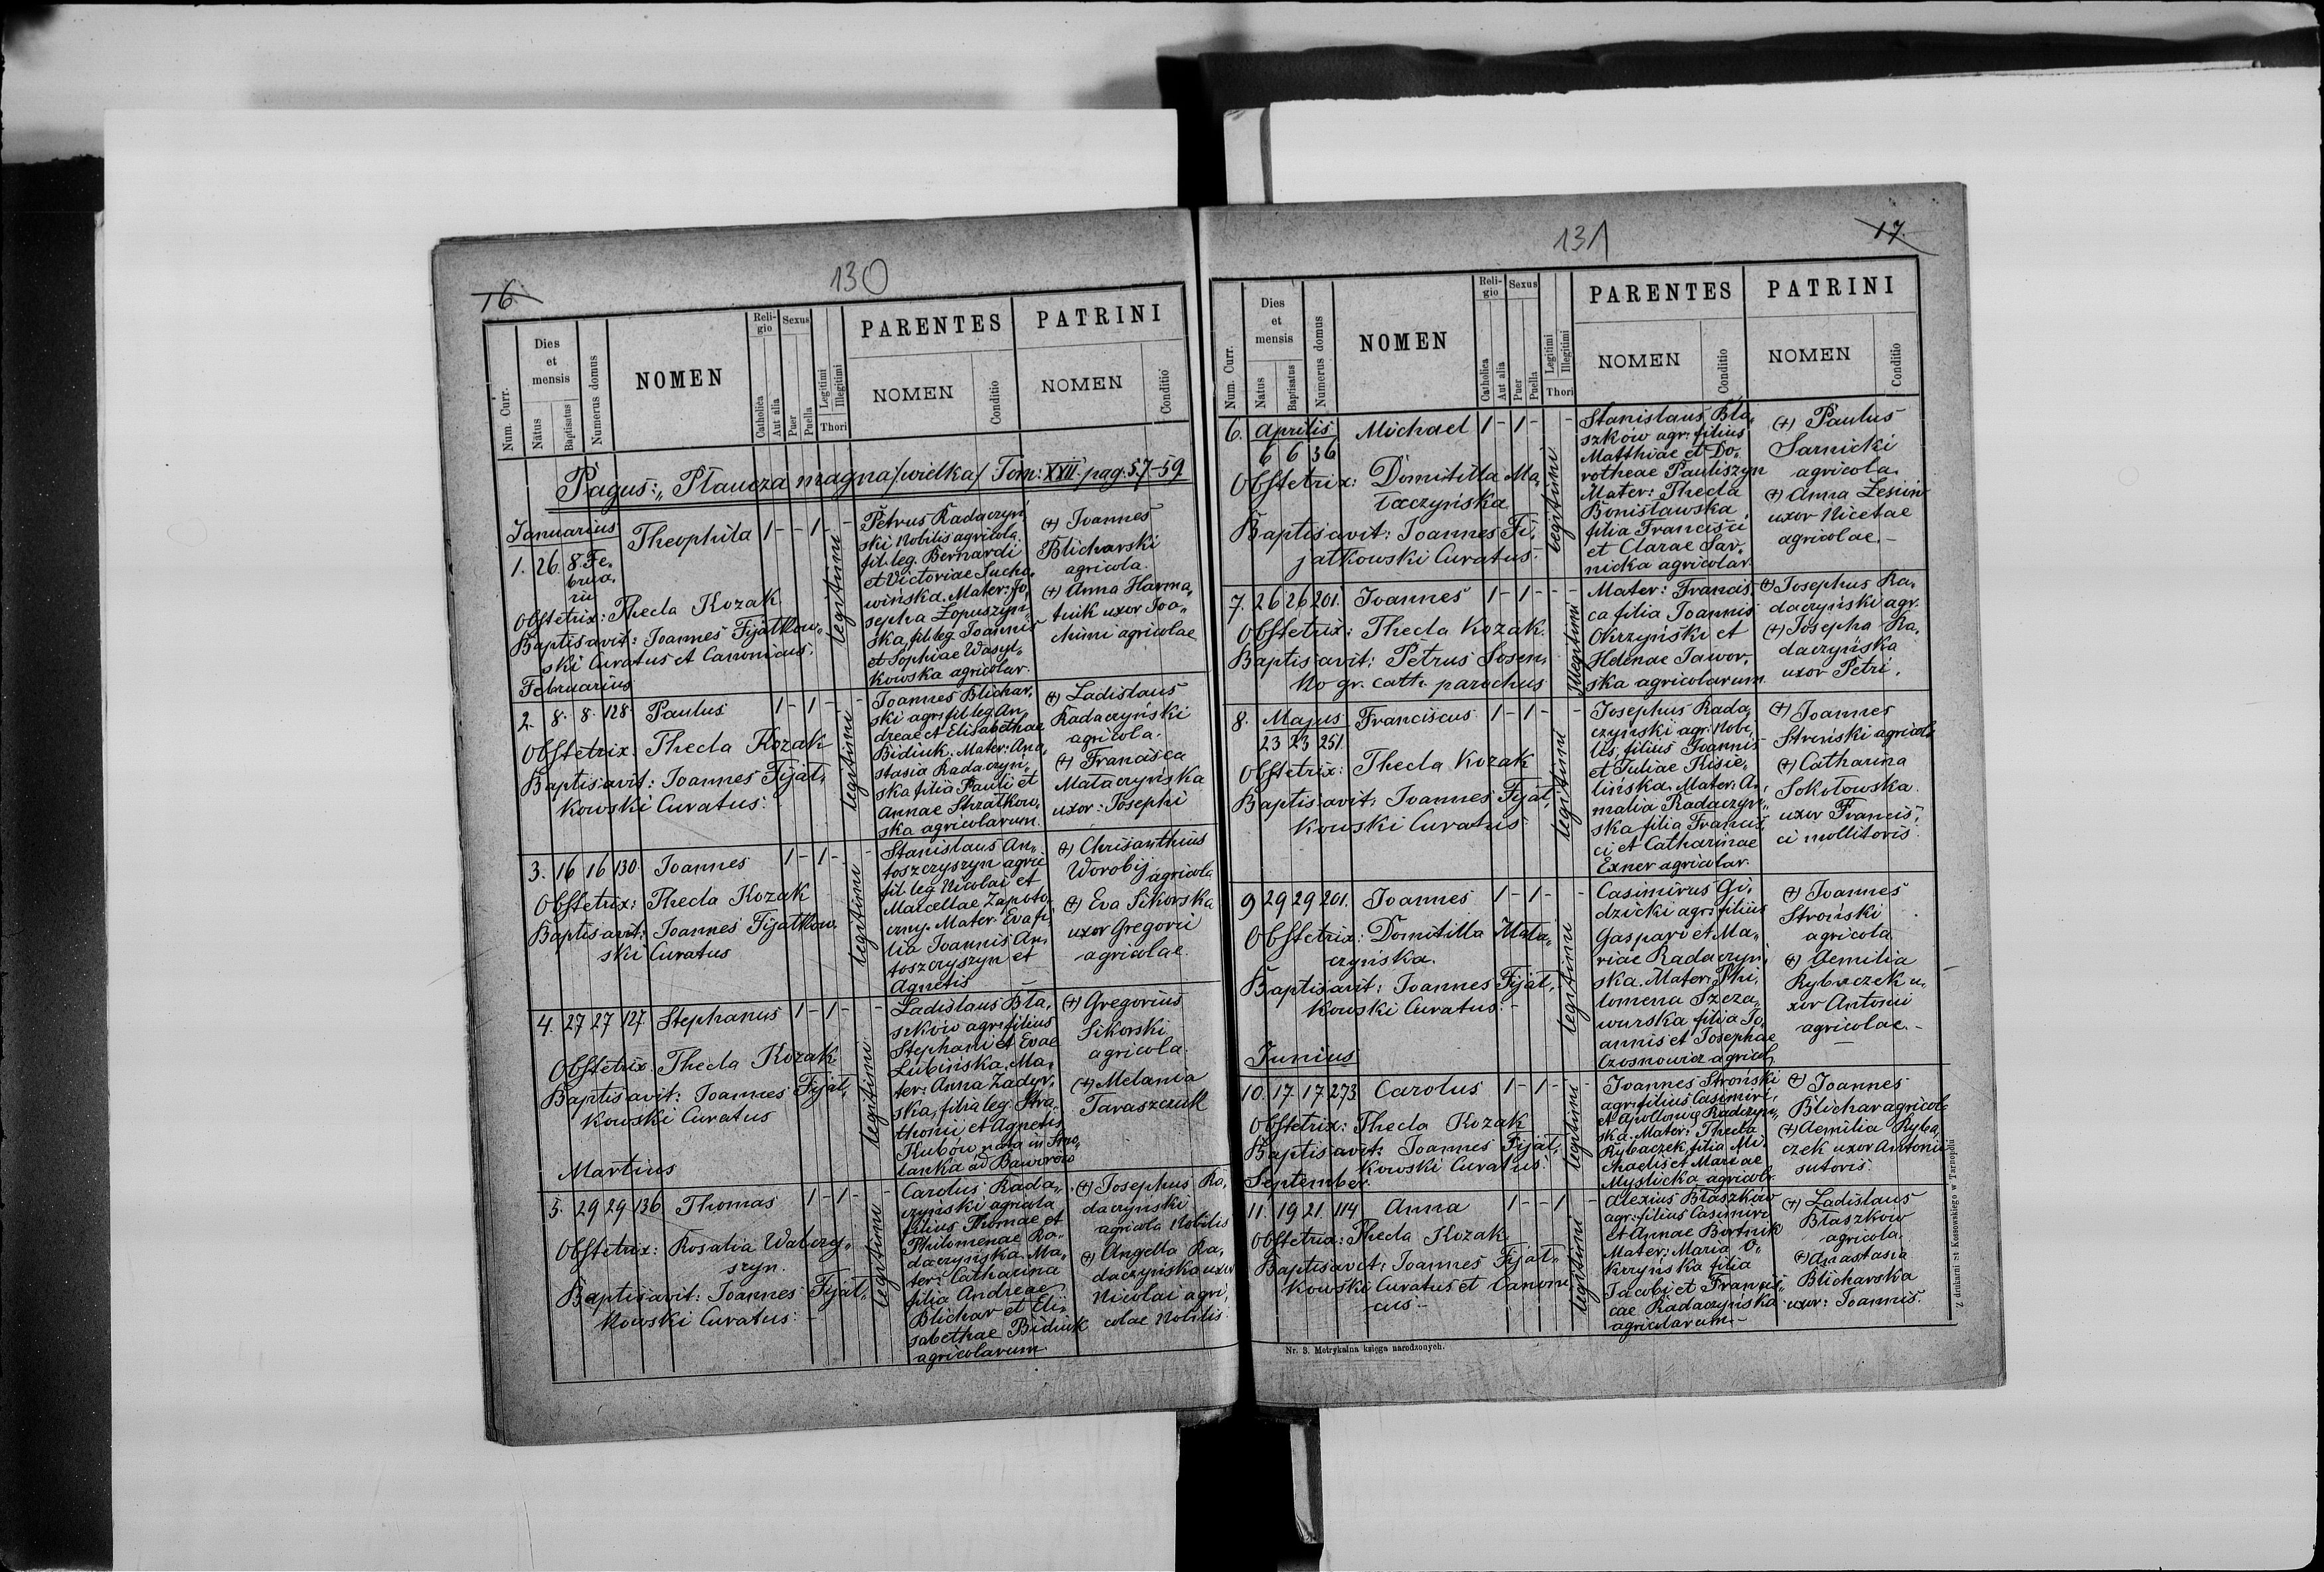 16
130
Num. Curr.
Dies
et
mensis
Natus
Baptisatus
Numerus domus
NOMEN
Reli-
gio
Catholica
Aut alia
Sexus
Puer
Puella
Legitimi
Illegitimi
Thori
PARENTES
NOMEN
Conditio
PATRINI
NOMEN
Conditio
Pagus: „Płaucza magna /wielka/ Tom: XXII. pag: 57-59
Januarius
1. 26. 8. Fe„
brua„
rii
Theophila 1 - - 1 -
Obstetrix: Thecla Kozak
Baptisavit: Joannes Fijałkow„
ski Curatus et Canonicus.
legitimi
Petrus Radaczyń„
ski Nobilis agricola
fil. leg. Bernardi
et Victoriae Sucho„
wińska. Mater: Jo„
sepha Łopuszyń„
ska, fil. leg. Joannis
et Sophiae Wasyl„
kowska agricolar.
(+) Joannes
Blicharski
agricola.
(+) Anna Harma„
tiuk uxor Joa„
chimi agricolae
Februarius
2. 8. 8. 128. Paulus 1 - 1 - -
Obstetrix. Thecla Kozak
Baptisavit: Joannes Fijał„
kowski Curatus.
legitimi
Joannes Blichar„
ski agr: fil. leg. An„
dreae et Elisabethae
Bidiuk. Mater: Ana„
stasia Radaczyń„
ska filia Pauli et
Annae Strzałkow„
ska agricolarum.
(+) Ladislaus
Radaczyński
agricola.
(+) Francisca
Mataczyńska
uxor: Josephi
3. 16 16 130 Joannes 1 - 1 - -
Obstetrix: Thecla Kozak
Baptisavit: Joannes Fijałkow„
ski Curatus
legitimi
Stanislaus An„
toszczyszyn agric
fil. leg. Nicolai et
Marcellae Zapoto„
czny. Mater: Eva fi„
lia Joannis An„
toszczyszyn et
Agnetis
(+) Chrisanthius
Worobij agricola
(+) Eva Sikorska
uxor Gregorii
agricolae.
4. 27 27 127. Stephanus 1 - 1 - -
Obstetrix. Thecla Kozak
Baptisavit: Joannes Fijał„
kowski Curatus
legitimi
Ladislaus Bła„
szków agr: filius
Stephani et Evae
Lubińska. Ma„
ter: Anna
ska, filia leg.
thonii et Agnetis
Kubów nata in
ad
(+) Gregorius
Sikorski
agricola.
(+) Melania
Taraszczuk
Martius
5. 29 29 136 Thomas 1 - 1 - -
Obstetrix: Rosalia Walczy„
szyn.
Baptisavit: Joannes Fijał„
kowski Curatus: -
legitimi
Carolus Rada„
czyński agricola
filius Thomae et
Philomenae Ra„
daczyńska. Ma„
ter: Catharina
filia Andreae
Blichar et Eli„
sabethae Bidiuk
agricolarum.
(+) Josephus Ra„
daczyński
agricola Nobilis
(+) Angella Ra„
daczyńska uxor
Nicolai agri„
colae Nobilis
131
17.
Num. Curr.
Dies
et
mensis
Natus
Baptisatus
Numerus domus
NOMEN
Reli-
gio
Catholica
Aut alia
Sexus
Puer
Puella
Legitimi
Illegitimi
Thori
PARENTES
NOMEN
Conditio
PATRINI
NOMEN
Conditio
6. Aprilis
6 6 36
Michael 1 - 1 - -
Obstetrix: Domitilla Ma„
taczyńska
Baptisavit: Joannes Fi„
jałkowski Curatus. -
legitimi
Stanislaus Bła„
szków agr: filius
Matthiae et Do„
rotheae Pauliszyn
Mater: Thecla
Bonisławska,
filia Francisci
et Clarae Sar„
nicka agricolar.
(+) Paulus
Sarnicki
agricola.
(+) Anna Łesiów
uxor Nicetae
agricolae. -
7. 26 26 201. Joannes 1 - 1 - - -
Obstetrix: Thecla Kozak.
Baptisavit: Petrus Sosen„
ko gr. cath. parochus
Illegitimi
Mater: Francis„
ca filia Joannis
Okrzyński et
Helenae Jawor„
ska agricolarum.
(+) Josephus Ra„
daczyński agr.
(+) Josepha Ra„
daczyńska
uxor Petri.
8. Majus
23 23 251.
Franciscus 1 - 1 - -
Obstetrix: Thecla Kozak
Baptisavit: Joannes Fijał„
kowski Curatus
legitimi
Josephus Rada„
czyński agr: Nobi„
lis, filius Joannis
et Juliae Kisie„
lińska. Mater: A„
malia Radaczyń„
ska filia Francis„
ci et Catharinae
Exner agricolar.
(+) Joannes
Stroński agricola
(+) Catharina
Sokołowska
uxor Francis„
ci mollitoris.
9 29 29 201. Joannes 1 - 1 - -
Obstetrix: Domitilla Mata„
czyńska.
Baptisavit: Joannes Fijał„
kowski Curatus. -
legitimi
Casimirus Gi„
dzicki agr: filius
Gaspari et Ma„
riae Radaczyń„
ska. Mater: Phi„
lomena Szcza„
wurska filia Jo„
annis et Josephae
Czosnowicz agricol.
(+) Joannes
Stroński
agricola.
(+) Aemilia
Rybaczek u„
xor Antonii
agricolae. -
Junius
10. 17. 17. 273 Carolus 1 - 1 - -
Obstetrix: Thecla Kozak
Baptisavit: Joannes Fijał„
kowski Curatus.
legitimi
Joannes Stroński
agr: filius Casimiri
et Apolloniae Radczyń„
ska. Mater: Thecla
Rybaczek filia Mi„
chaelis et Mariae
Myslicka agricolr.
(+) Joannes
Blichar agricola
(+) Aemilia Ryba„
czek uxor Antonii
sutoris.
September.
11. 19 21. 114 Anna 1 - - 1 -
Obstetrix: Thecla Kozak.
Baptisavit: Joannes Fijał„
kowski Curatus et Canoni„
cus. -
legitimi
Alexius Błaszków
agr: filius Casimiri
et Annae Bortnik
Mater: Maria O„
krzyńska filia
Jacobi et Francis„
cae Radaczyńska
agricolarum. -
(+) Ladislaus
Błaszków
agricola.
(+) Anastasia
Blicharska
uxor: Joannis.
Nr. 3. Metrykalna księga narodzonych.
Z drukarni St Kossowskiego w Tarnopolu